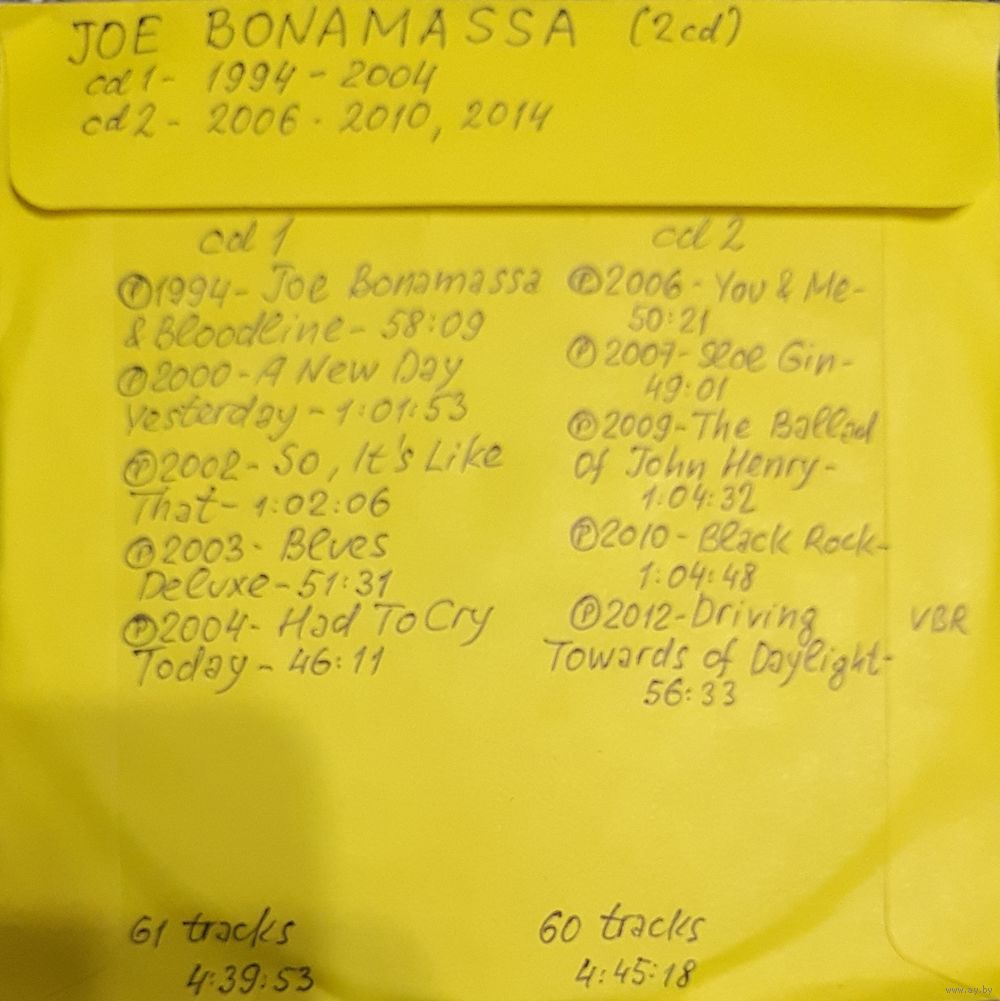 JOE BONAMASSA (2cd)
cd1- 1994 - 2004
cd2 - 2006 - 2010, 2014
cd 1
Ⓟ1994- Joe Bonamassa
& Bloodline - 58:09
Ⓟ2000 - A New Day
Yesterday - 1:01:53
Ⓟ2002- So, It's Like
That- 1:02:06
Ⓟ2003- Blues
Deluxe - 51:31
Ⓟ2004- Had To Cry
Today - 46:11
61 tracks
4:39:53
cd 2
Ⓟ2006 - You & Me-
50:21
Ⓟ2007- Sloe Gin-
49:01
Ⓟ2009-The Ballad
Of John Henry-
1:04:32
Ⓟ2010 - Black Rock-
1:04:48
Ⓟ2012-Driving
Towards of Daylight-
56:33
60 tracks
4:45:18
VBR
www.ay.by